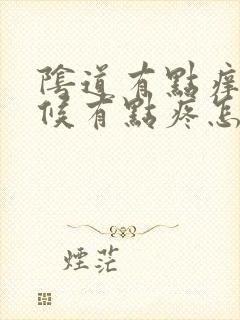 陰道有點痒
候有點疼怎
煙茫